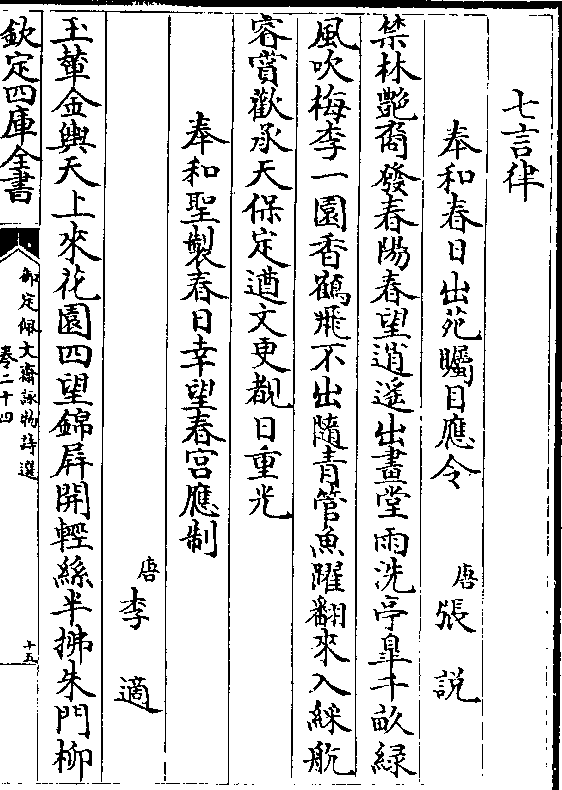 七言律
奉和春日出苑矚目應令
唐張說
禁林艷裔發春陽春望逍遙出畫堂雨洗亭臯千畝綠
風吹梅李一園香鶴飛不出隨青管魚躍翻來入綵航
睿賞歡承天保定遒文更覩日重光
奉和聖製春日幸望春宮應制
唐李適
玉輦金輿天上來花園四望錦屏開輕絲半拂朱門柳
欽定四庫全書
御定佩文齋詠物詩選
卷二十四
十五